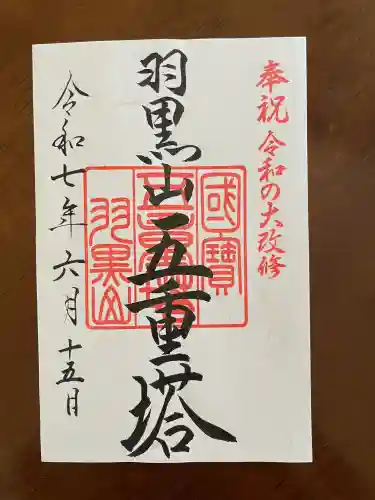 奉祝 令和の大改修
羽黒山五重塔
國寶
五重塔
羽黒山
令和七年 六月 十五日